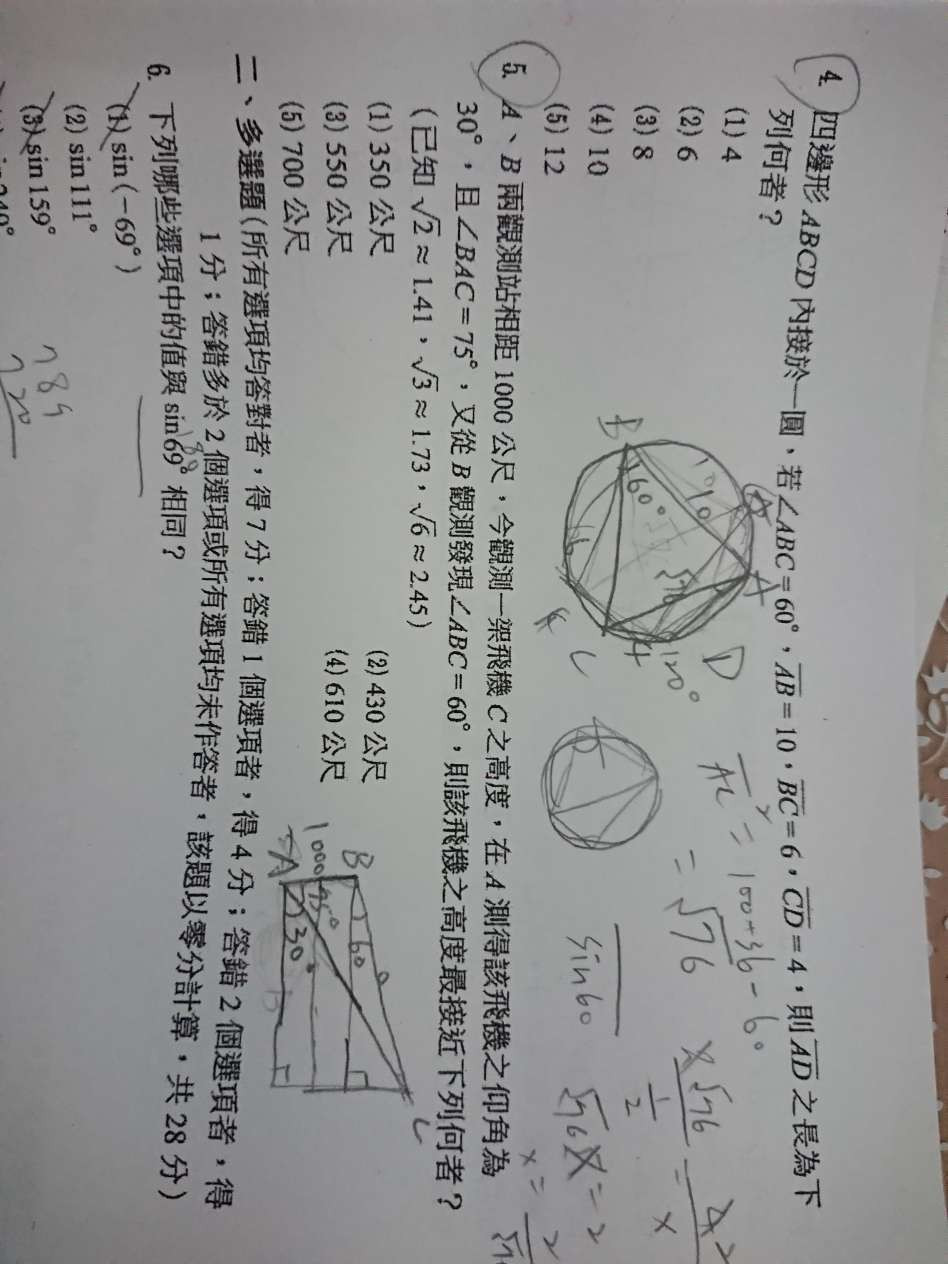 4. 四邊形 ABCD 內接於一圓，若∠ABC=60°，AB=10，BC=6，CD=4，則AD之長為下
列何者？
(1) 4
(2) 6
(3) 8
(4) 10
(5) 12
B
60°
10
A
A
√76
6
C
4
120°
D
AC² = 100+36-60
= √76
sin60
√76
1/2
=
4
x
√76 x = 2
x = 2
5. A、B 兩觀測站相距 1000 公尺，今觀測一架飛機 C 之高度，在 A 測得該飛機之仰角為
30°，且∠BAC=75°，又從 B 觀測發現∠ABC=60°，則該飛機之高度最接近下列何者？
(已知 √2≈1.41，√3≈1.73，√6≈2.45)
(1) 350 公尺
(2) 430 公尺
(3) 550 公尺
(4) 610 公尺
(5) 700 公尺
B
60°
1000
75°
A
30°
C
二、多選題(所有選項均答對者，得 7 分；答錯 1 個選項者，得 4 分；答錯 2 個選項者，得
1 分；答錯多於 2 個選項或所有選項均未作答者，該題以零分計算，共 28 分)
6. 下列哪些選項中的值與 sin69° 相同？
(1) sin(-69°)
(2) sin111°
(3) sin159°